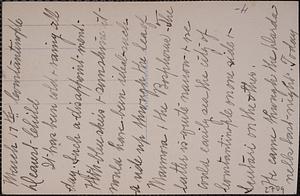 -4
March 17th Constantinople
Dearest Child
It has been cold & raining all
day. Such a disappointment.
With blue skies & sunshine it
would have been what such
a ride up through the Sea of
Marmora & the Bosphorus. The
latter is quite narrow & one
could easily see the city of
Constantinople on one side &
Scutari on the other.
We came through the Darda
nelles last night. Today